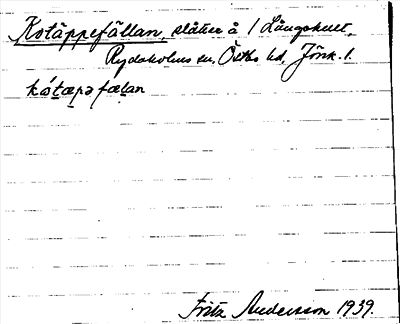 Kotäppefällan, slåtter å 1 Långhult,
Rydaholms sn, Östbo hd, Jönk. l.
kótæpə fælan
Fritz Andersson 1939.